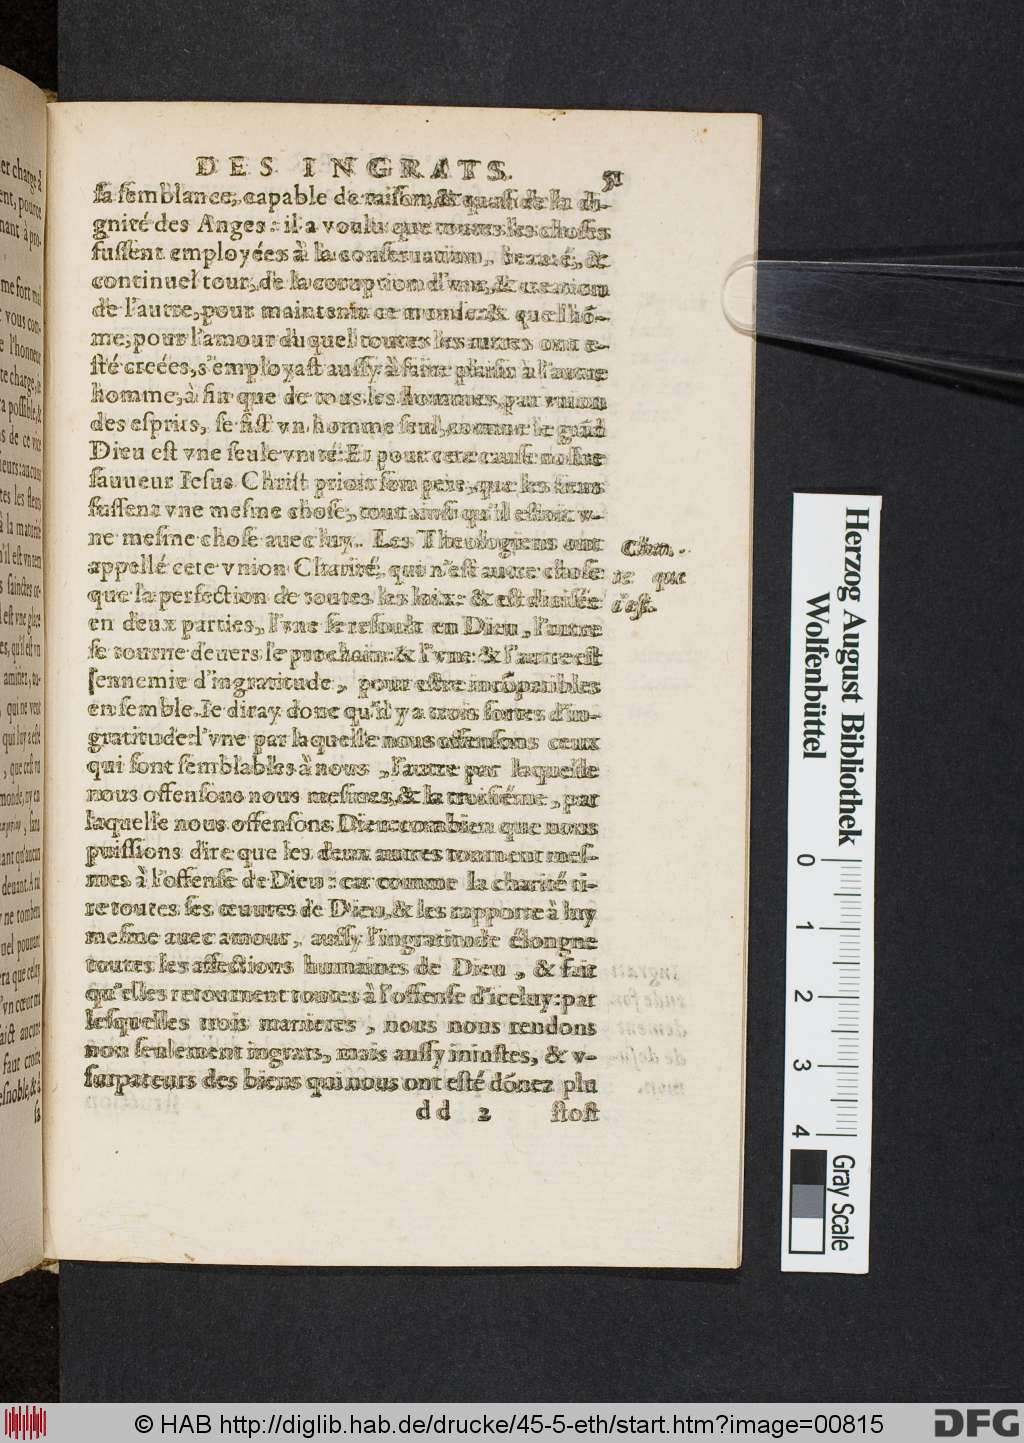 er charge, à
me fort mal
vous con-
l'honneur
te charge, &
a possible, &
s de ce vice
tes les siens
à la maturité
n'il est vn
amitiez, au-
qui ne veut
qui luy a esté
, que cest vn
monde, ny en
, sans
ant qu'aucun
deuant. A tel
ne tomber
nel pouuant
era que celuy
'vn cœur
aict aucune
faut croire
esnoble, & à
sa
DES INGRATS. 51
sa semblance, capable de raison, & quasi de la di-
gnité des Anges: il a voulu que toutes les choses
fussent employées à la conseruation, beauté, &
continuel tour, de la coruption d'vne, & creation
de l'autre, pour maintenir ce monde: & que l'hõ-
me, pour l'amour duquel toutes les autres ont e-
sté creées, s'employast aussy à faire plaisir à l'autre
homme, à fin que de tous les hommes, par vnion
des esprits, se fist vn homme seul, comme le grãd
Dieu est vne seule vnité: Et pour cete cause nostre
sauueur Iesus Christ prioit son pere, que les siens
fussent vne mesme chose, tout ainsi qu'il estoit v-
ne mesme chose auec luy. Les Theologiens ont
appellé cete vnion Charité, qui n'est autre chose
que la perfection de toutes les loix: & est diuisée
en deux parties, l'vne se resoult en Dieu, l'autre
se tourne deuers le prochain: & l'vne & l'autre est
sennemie d'ingratitude, pour estre incõpatibles
ensemble. Ie diray donc qu'il y a trois sortes d'in-
gratitude: l'vne par laquelle nous offensons ceux
qui sont semblables à nous, l'autre par laquelle
nous offensons nous mesmes, & la troisiéme, par
laquelle nous offensons Dieu: combien que nous
puissions dire que les deux autres tournent mes-
mes à l'offense de Dieu: car comme la charité ti-
re toutes ses œuures de Dieu, & les rapporte à luy
mesme auec amour, aussy l'ingratitude élongne
toutes les affections humaines de Dieu, & fait
qu'elles retournent toutes à l'offense d'iceluy: par
lesquelles trois manieres, nous nous rendons
non seulement ingrats, mais aussy iniustes, & v-
surpateurs des biens qui nous ont esté dónez plu
dd 2 stost
Chari-
té que
c'est.
Herzog August Bibliothek
Wolfenbüttel
0 1 2 3 4
Gray Scale
© HAB http://diglib.hab.de/drucke/45-5-eth/start.htm?image=00815
DFG